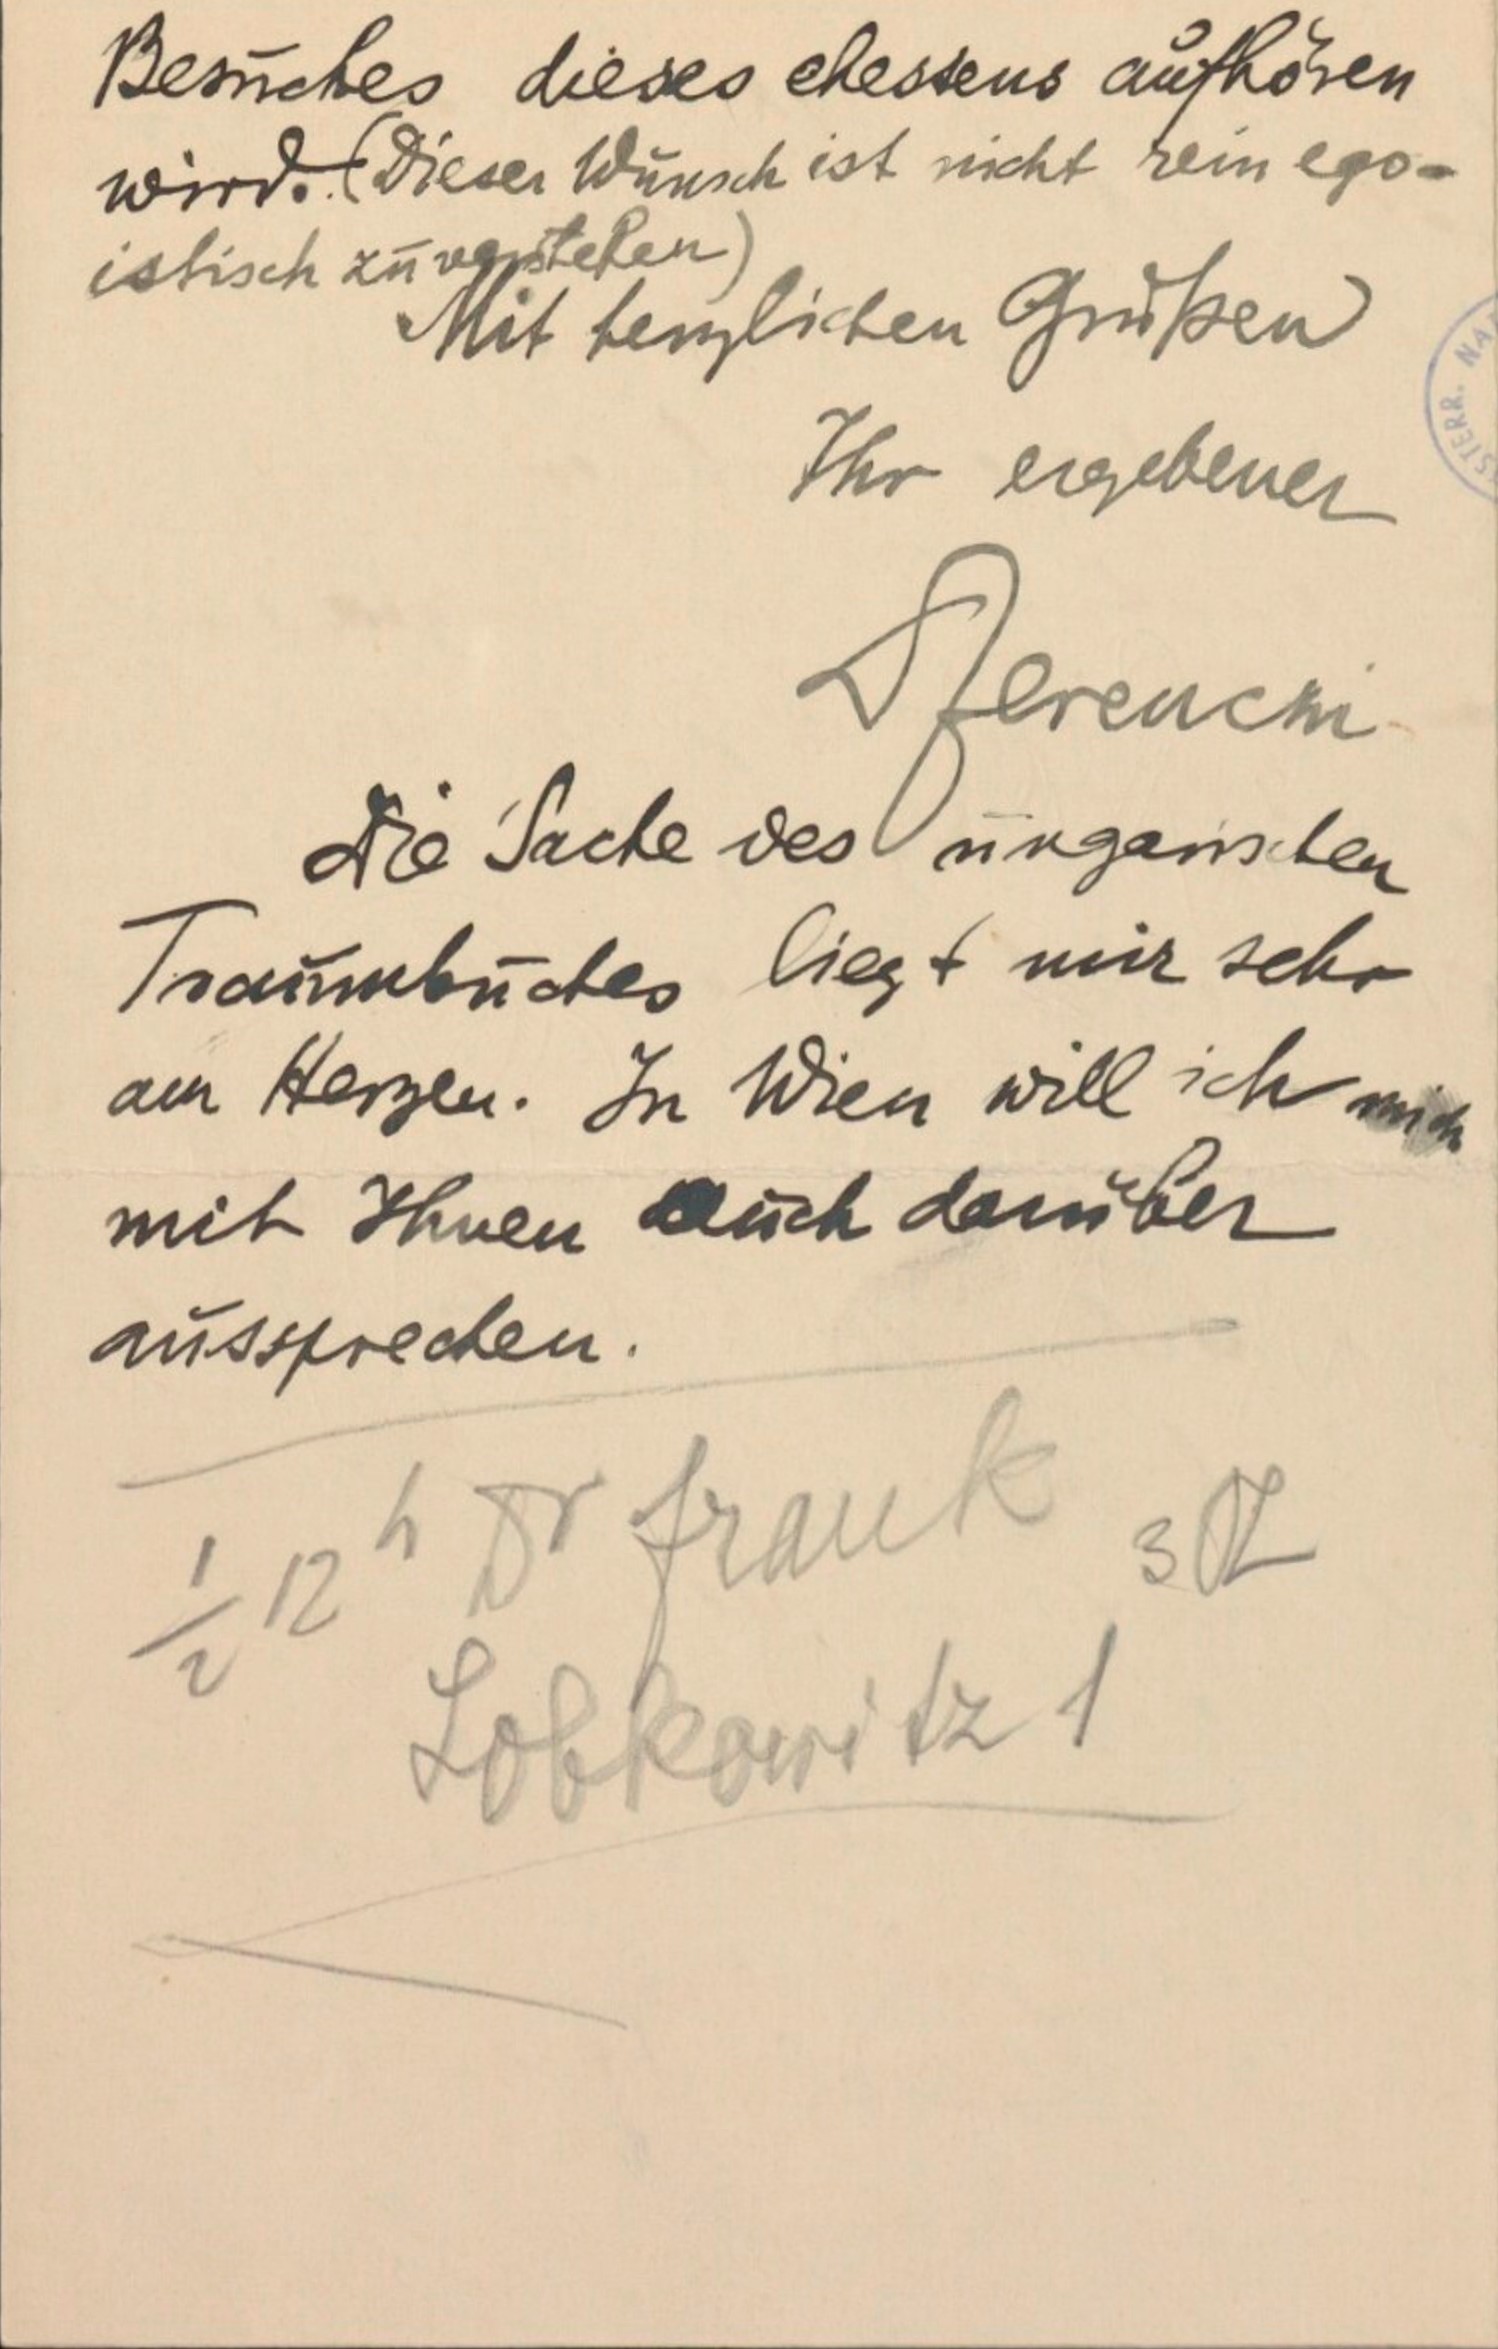 Besuches dieses ehestens aufhören
wird. (Dieser Wunsch ist nicht rein ego-
istisch zu verstehen)
Mit herzlichen Grüßen
Ihr ergebener
Ferenczi
Die Sache des ungarischen
Traumbuches liegt mir sehr
am Herzen. In Wien will ich mich
mit Ihnen auch darüber
aussprechen.
1/2 12 h Dr Frank 3
Lobkowitz 1
STERR. NA